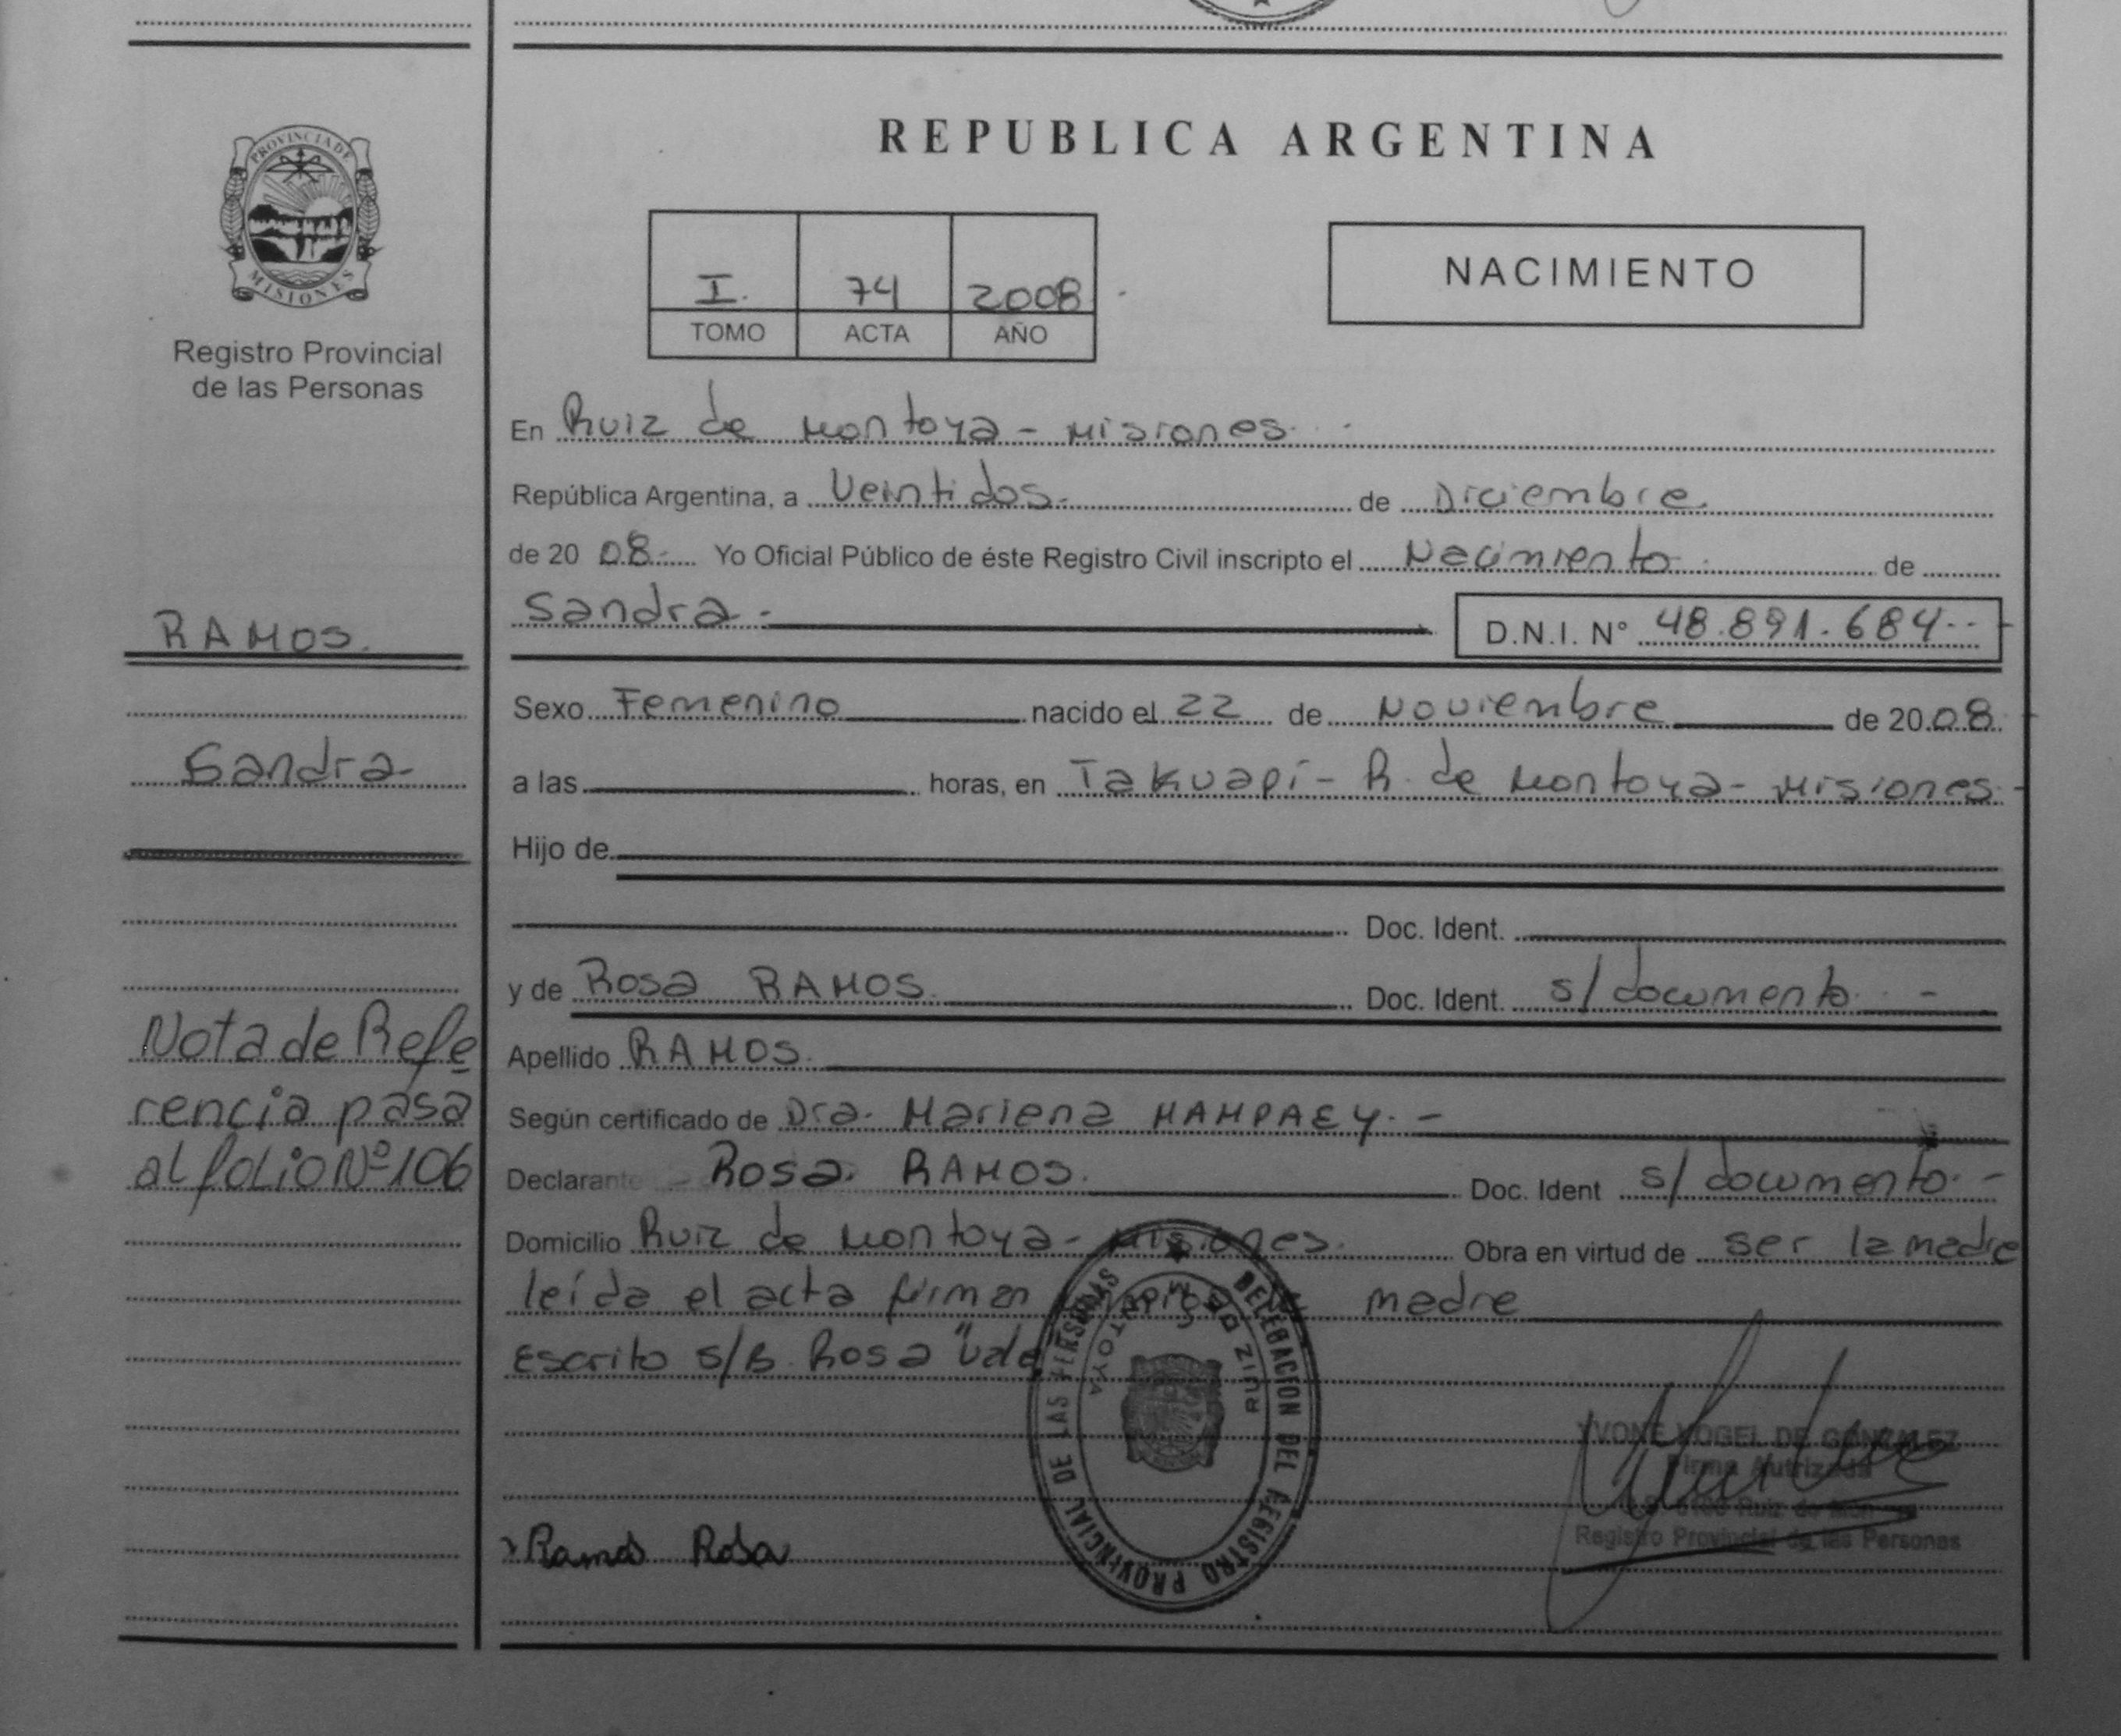 REPUBLICA ARGENTINA
PROVINCIA DE
MISIONES
Registro Provincial
de las Personas
I. 74 2008
TOMO ACTA AÑO
NACIMIENTO
En Ruiz de Montoya - Misiones
República Argentina, a Veintidos de Diciembre
de 20 08 Yo Oficial Público de éste Registro Civil inscripto el Nacimiento de
Sandra D.N.I. N° 48.891.684
RAMOS.
Sexo Femenino nacido el 22 de Noviembre de 20 08
Sandra
a las horas, en Takuapí - R. de Montoya - Misiones
Hijo de
Doc. Ident.
y de Rosa RAMOS. Doc. Ident. s/documento. -
Apellido RAMOS.
Nota de Refe
rencia pasa
al folio Nº 106
Según certificado de Dra. Mariena HAMPAEY. -
Declarante Rosa RAMOS. Doc. Ident s/documento. -
Domicilio Ruiz de Montoya - Misiones. Obra en virtud de ser la madre
leída el acta firman madre
Escrito s/B. Rosa "Vale
DELEGACION DEL REGISTRO PROVINCIAL DE LAS PERSONAS
RUIZ DE MONTOYA
Ramos Rosa
YVONE VOGEL DE GONZALEZ
Firma Autrizada
Ruiz de
Registro Provincial de las Personas